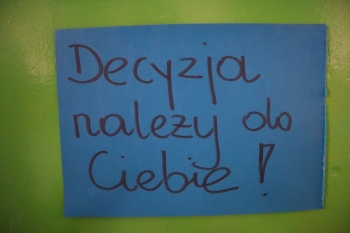 Decyzja
należy do
Ciebie!